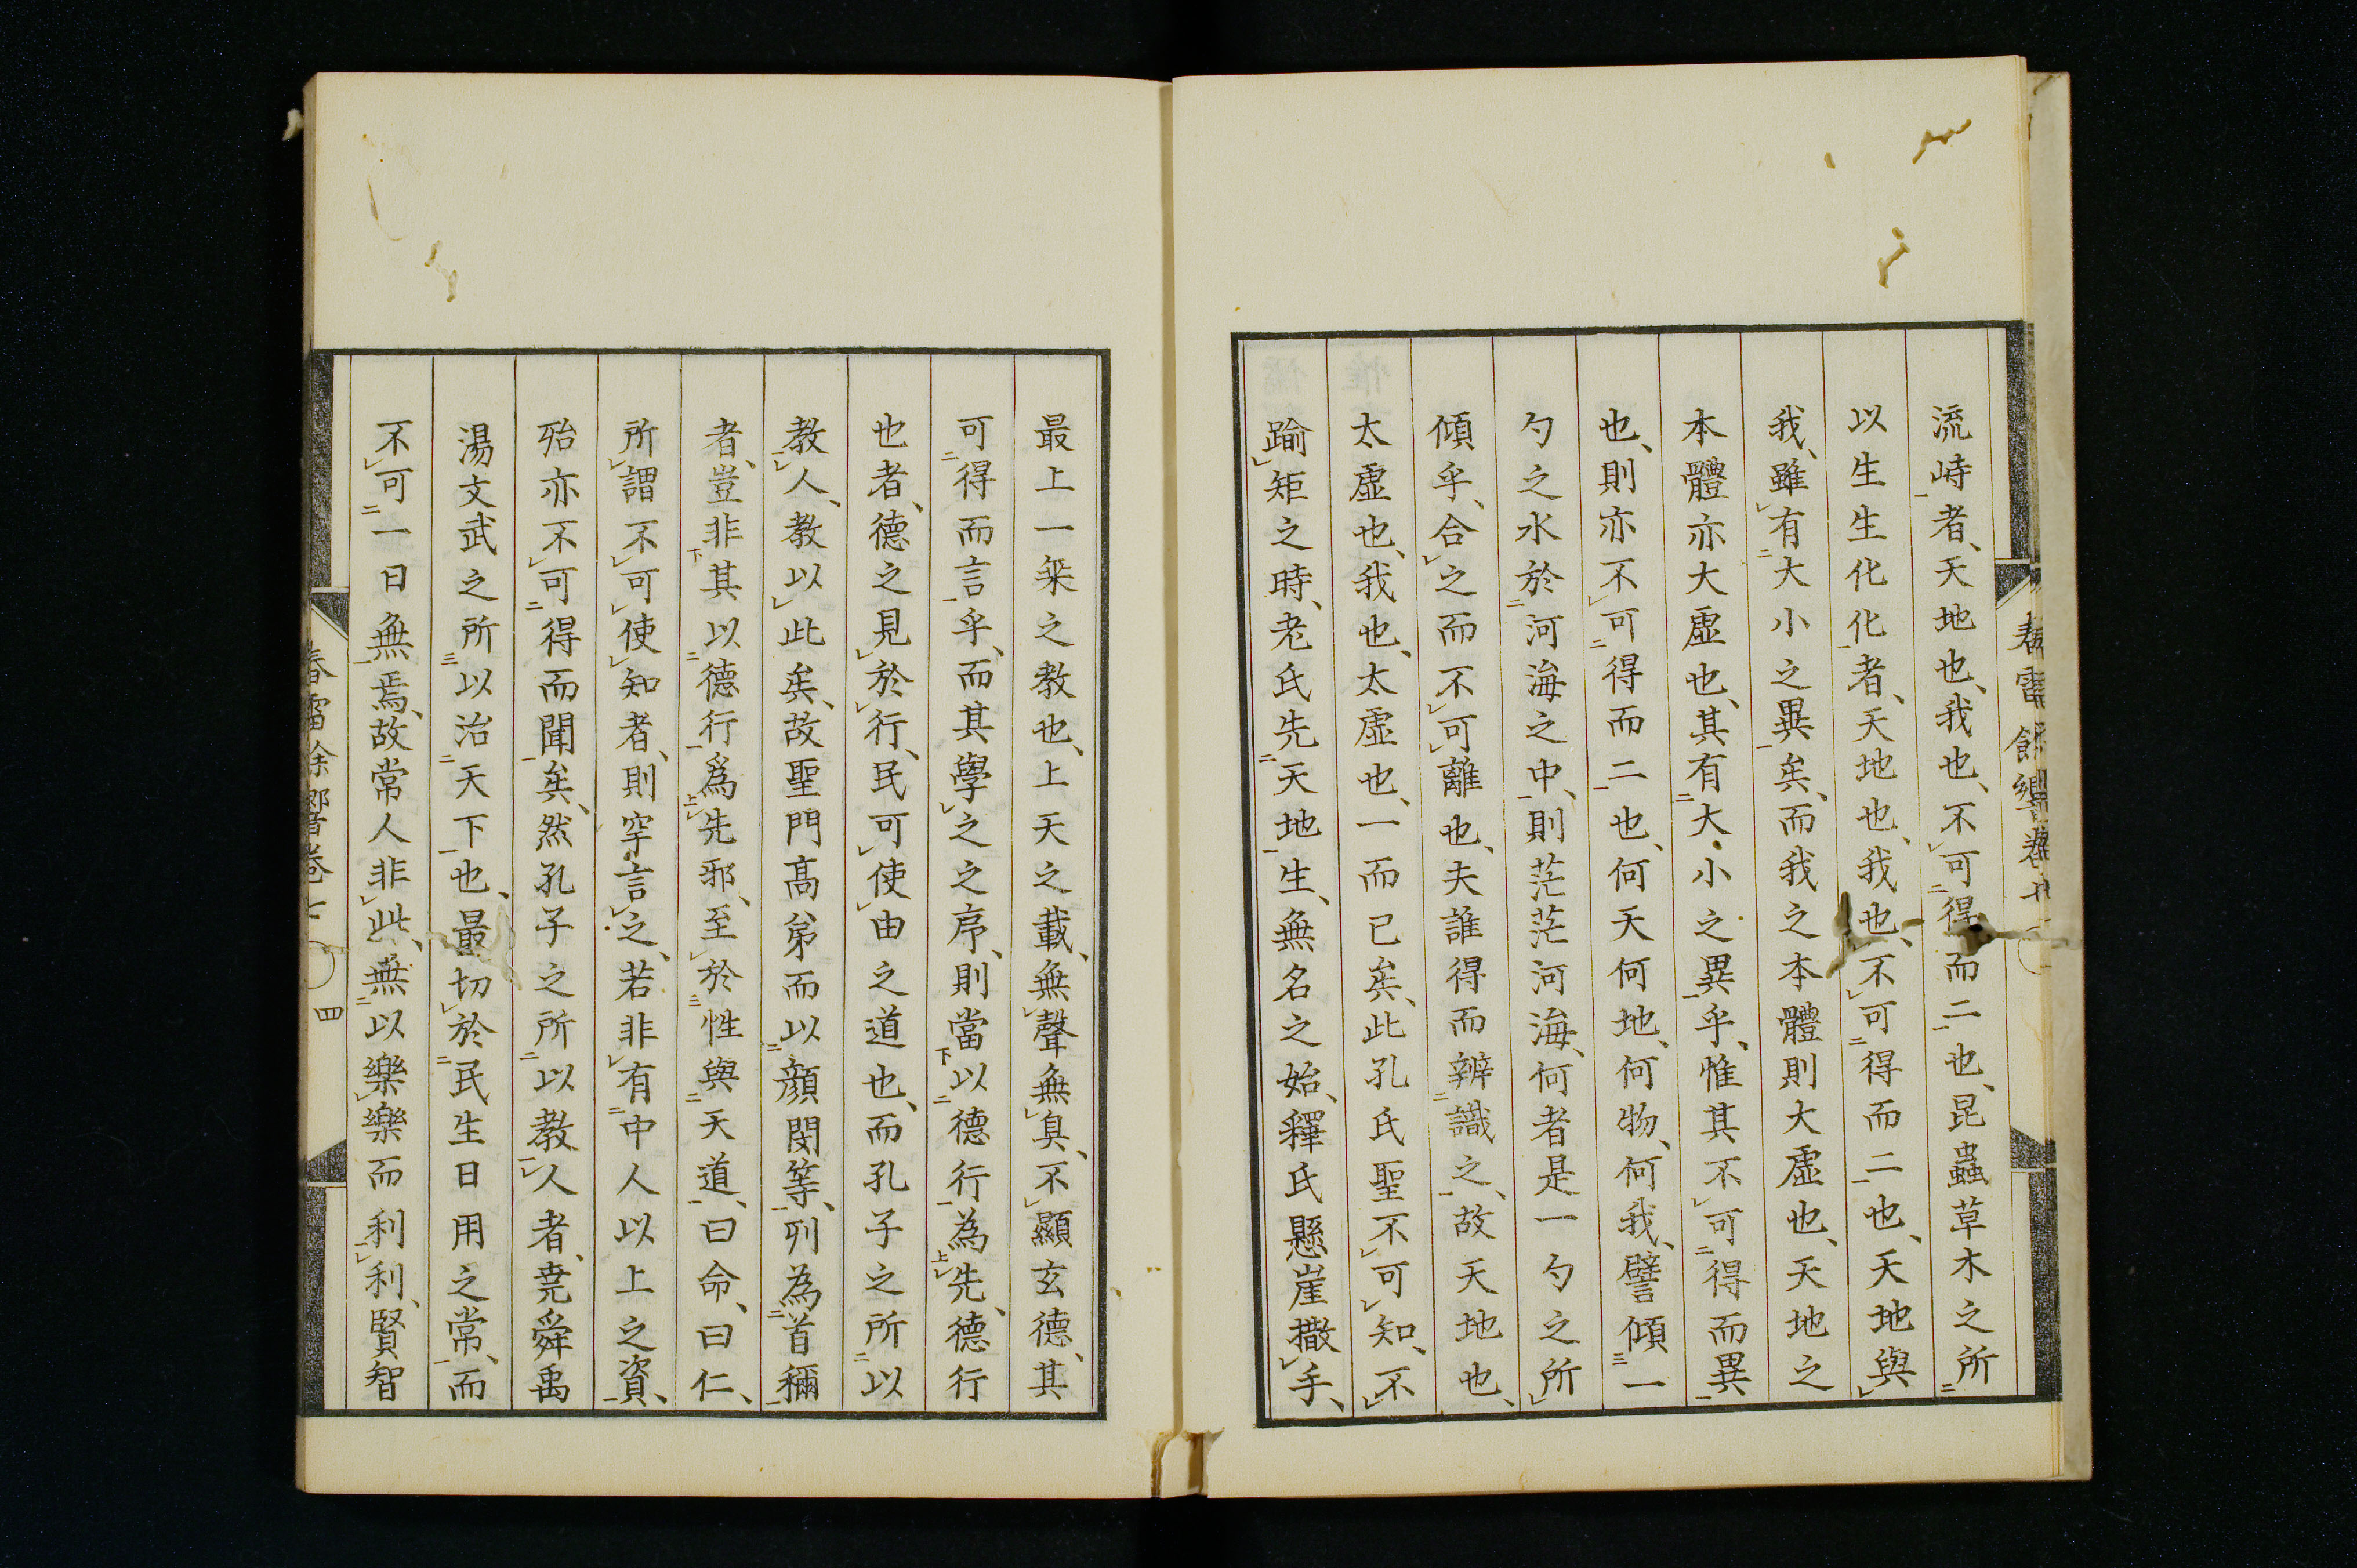 流峙者、天地也、我也、不可得而二也、昆蟲草木之所
以生生化化者、天地也、我也、不可得而二也、天地與
我、雖有大小之異矣、而我之本體則大虛也、天地之
本體亦大虛也、其有大小之異乎、惟其不可得而異
也、則亦不可得而二也、何天何地、何物、何我、譬傾一
勺之水於河海之中、則茫茫河海、何者是一勺之所
傾乎、合之而不可離也、夫誰得而辨識之、故天地也、
太虛也、我也、太虛也、一而已矣、此孔氏聖不可知、不
踰矩之時、老氏先天地生、無名之始、釋氏懸崖撒手、
最上一乘之教也、上天之載、無聲無臭、不顯玄德、其
可得而言乎、而其學之之序、則當以德行為先、德行
也者、德之見於行、民可使由之道也、而孔子之所以
教人、教以此矣、故聖門高弟而以顏閔等、列為首稱
者、豈非其以德行爲先邪、至於性與天道、曰命、曰仁、
所謂不可使知者、則罕言之、若非有中人以上之資、
殆亦不可得而聞矣、然孔子之所以教人者、堯舜禹
湯文武之所以治天下也、最切於民生日用之常、而
不可一日無焉、故常人非此、無以樂樂而利利、賢智
春雷餘響卷七
四